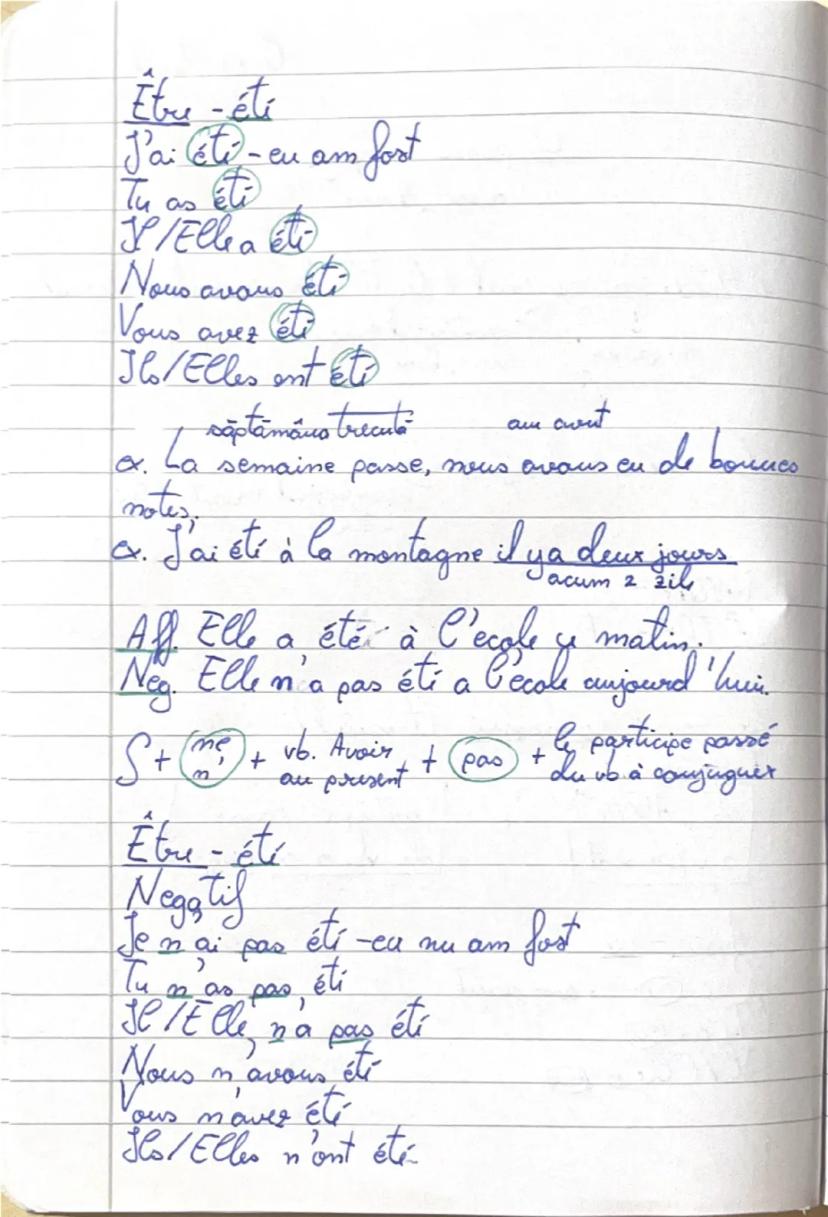 Être - été
J'ai été - eu am fost
Tu as été
Il/Elle a été
Nous avons été
Vous avez été
Ils/Elles ont été
săptămâna trecută am avut
ex. La semaine passe, nous avons eu de bonnes
notes,
ex. J'ai été à la montagne il y a deux jours
acum 2 zile
Aff. Elle a été à l'ecole ce matin.
Neg. Elle n'a pas été a l'école aujourd'hui.
S + ne n' + vb. Avoir au present + pas + le participe passé du vb à conjuguer
Être - été
Negatif
Je n'ai pas été - eu nu am fost
Tu n'as pas été
Il/Elle n'a pas été
Nous n'avons été
Vous n'avez été
Ils/Elles n'ont été